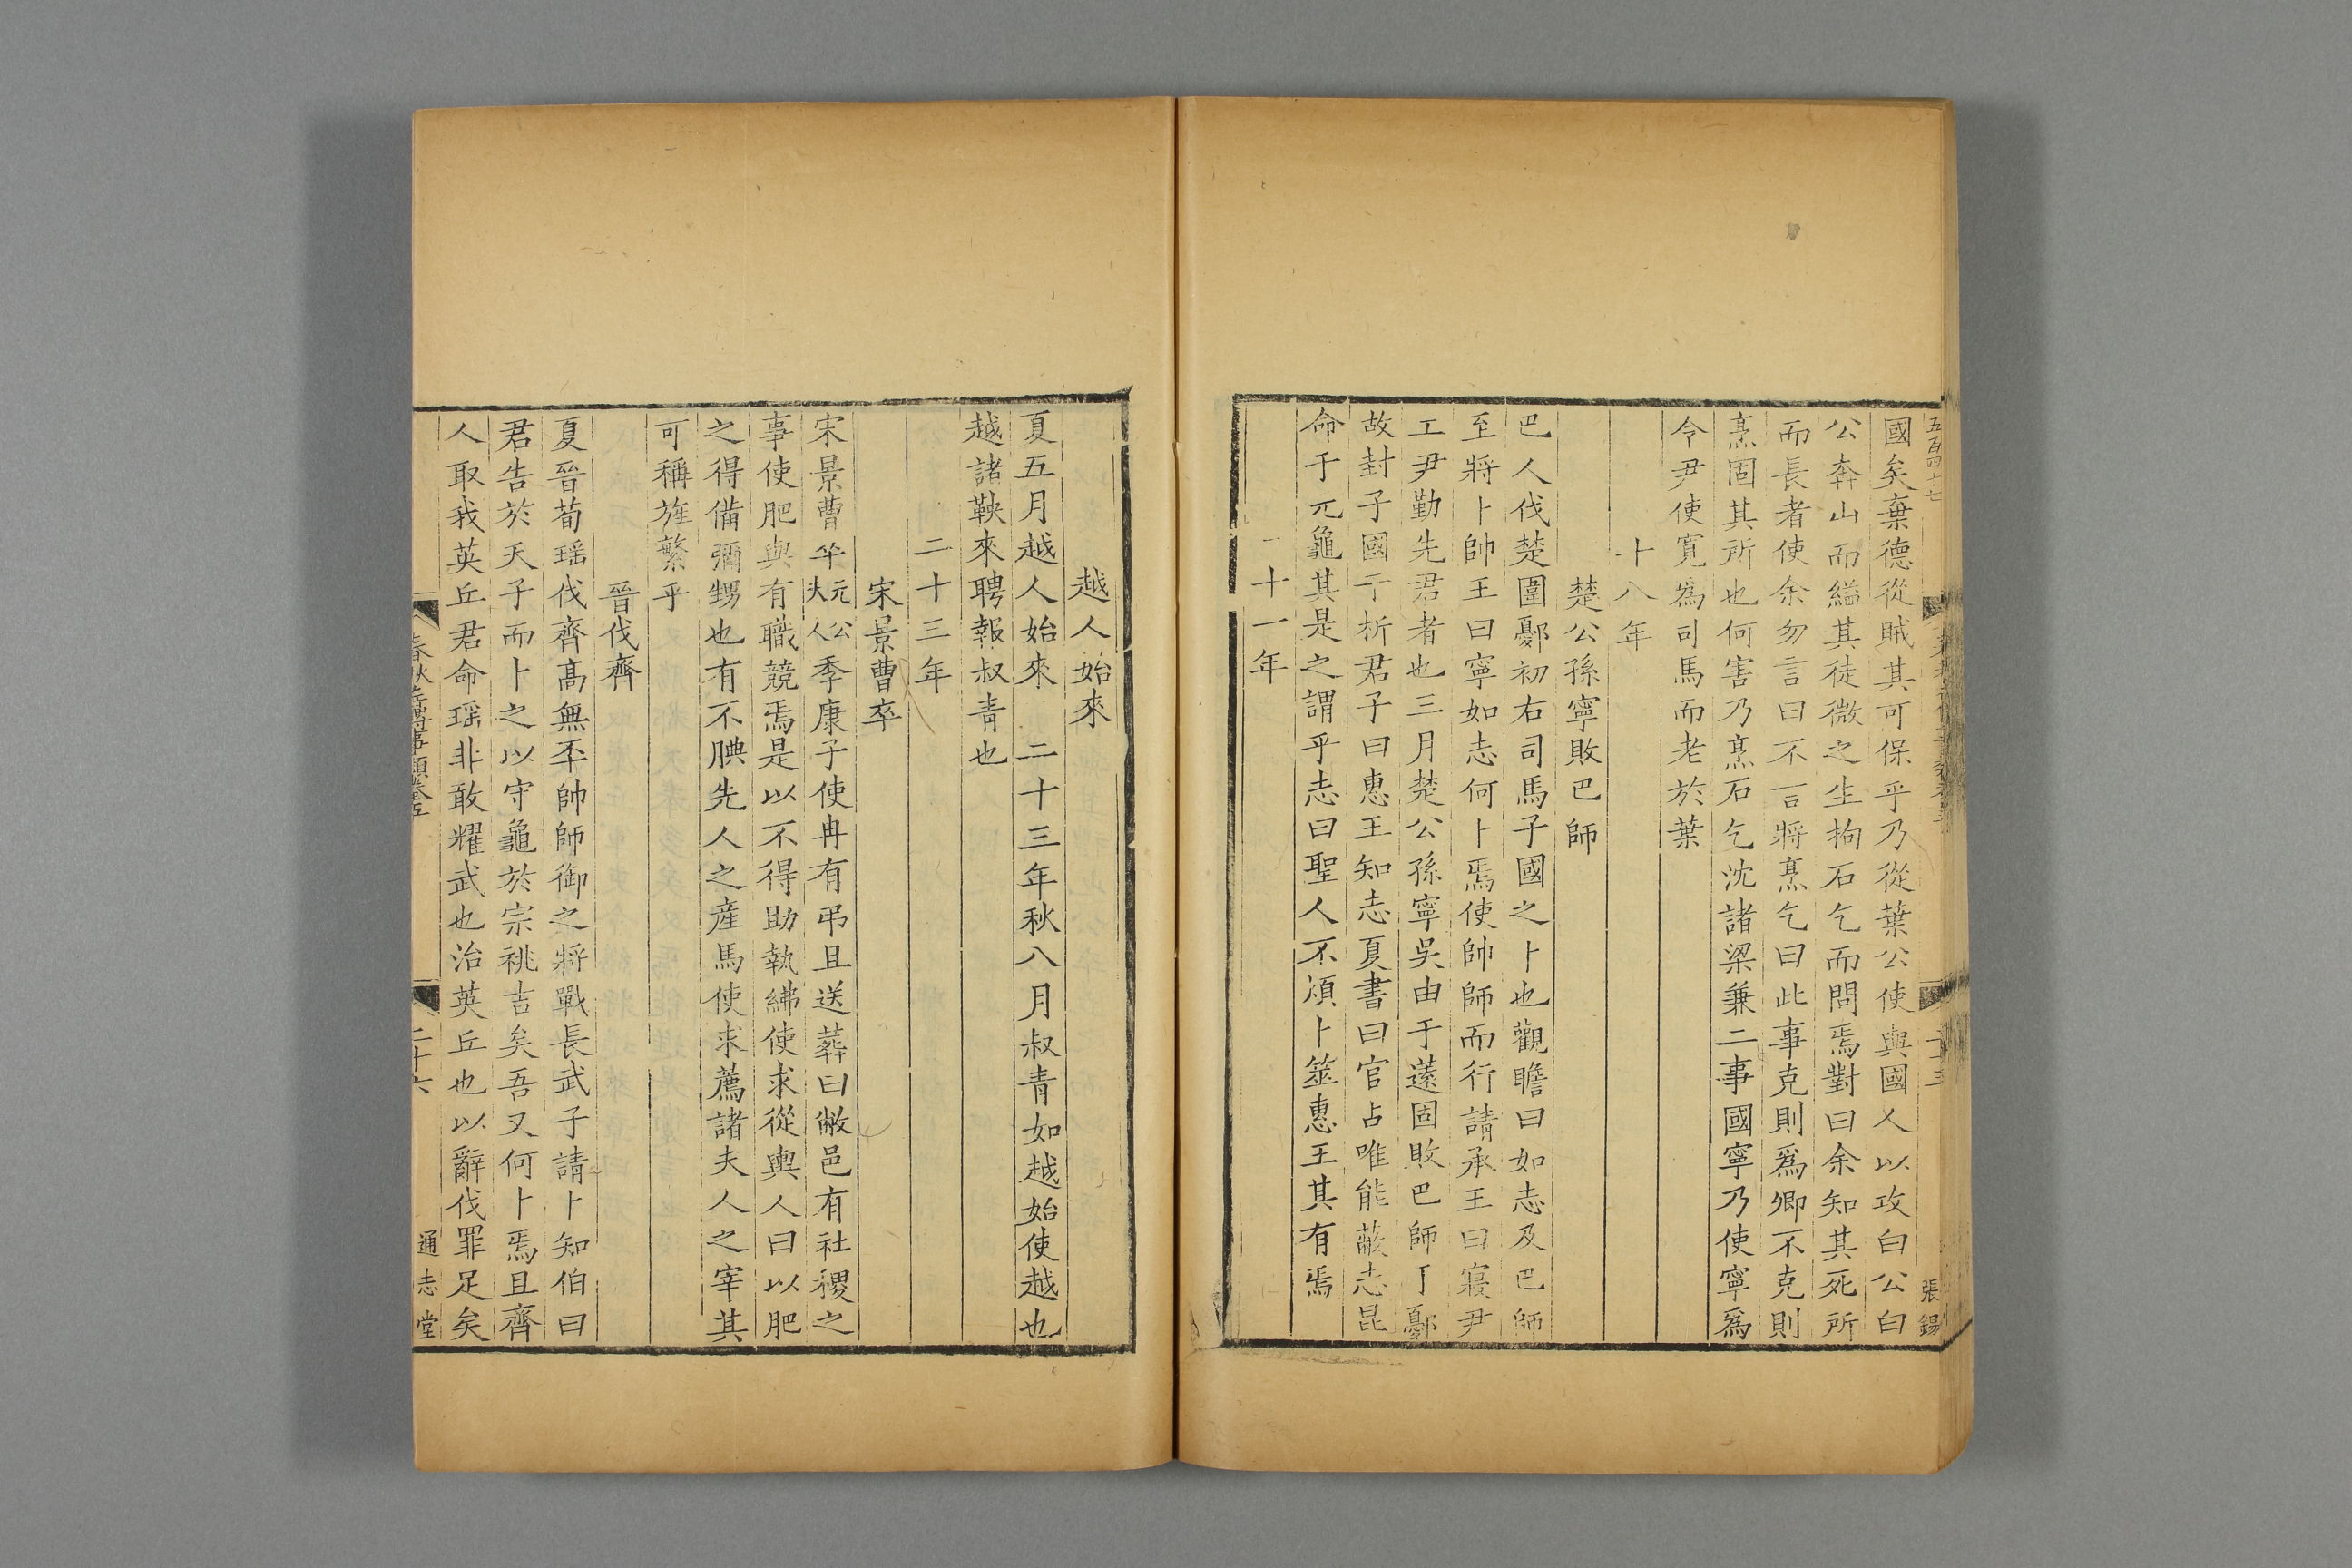 五百四十七
張錫
國矣棄德從賊其可保乎乃從葉公使與國人以攻白公白
公奔山而縊其徒微之生拘石乞而問焉對曰余知其死所
而長者使余勿言曰不言將烹乞曰此事克則爲卿不克則
烹固其所也何害乃烹石乞沈諸梁兼二事國寧乃使寧爲
令尹使寬爲司馬而老於葉
十八年
楚公孫寧敗巴師
巴人伐楚圍鄾初右司馬子國之卜也觀瞻曰如志及巴師
至將卜帥王曰寧如志何卜焉使帥師而行請承王曰寢尹
工尹勤先君者也三月楚公孫寧吳由于薳固敗巴師于鄾
故封子國于析君子曰惠王知志夏書曰官占唯能蔽志昆
命于元龜其是之謂乎志曰聖人不煩卜筮惠王其有焉
二十一年
越人始來
夏五月越人始來 二十三年秋八月叔青如越始使越也
越諸鞅來聘報叔青也
二十三年
宋景曹卒
宋景曹卒元公夫人季康子使冉有弔且送葬曰敝邑有社稷之
事使肥與有職競焉是以不得助執紼使求從輿人曰以肥
之得備彌甥也有不腆先人之產馬使求薦諸夫人之宰其
可稱旌繁乎
晉伐齊
夏晉荀瑤伐齊高無㔻帥師御之將戰長武子請卜知伯曰
君告於天子而卜之以守龜於宗祧吉矣吾又何卜焉且齊
人取我英丘君命瑤非敢耀武也治英丘也以辭伐罪足矣
春秋左傳事類卷五
二十六
通志堂